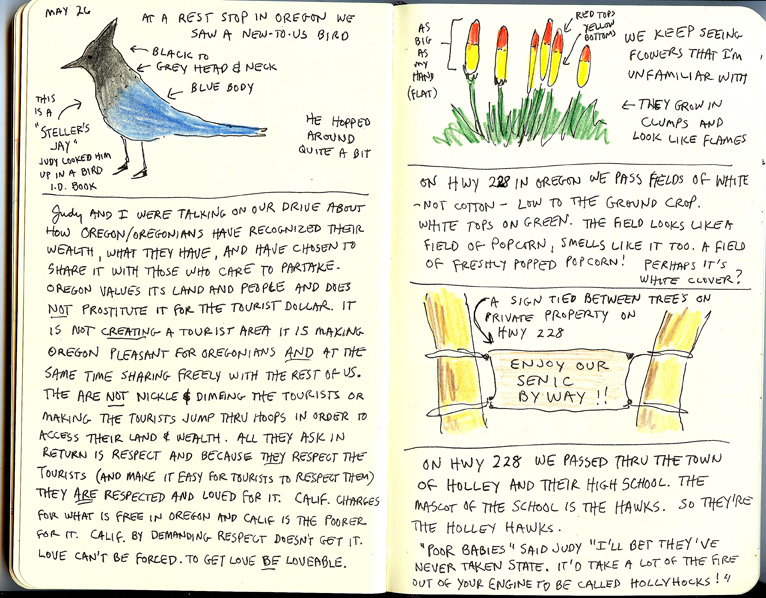 MAY 26
AT A REST STOP IN OREGON WE
SAW A NEW-TO-US BIRD
BLACK TO
GREY HEAD & NECK
BLUE BODY
THIS
IS A
"STELLER'S
JAY"
JUDY LOOKED HIM
UP IN A BIRD
I.D. BOOK
HE HOPPED
AROUND
QUITE A BIT
Judy AND I WERE TALKING ON OUR DRIVE ABOUT
HOW OREGON/OREGONIANS HAVE RECOGNIZED THEIR
WEALTH, WHAT THEY HAVE, AND HAVE CHOSEN TO
SHARE IT WITH THOSE WHO CARE TO PARTAKE-
OREGON VALUES ITS LAND AND PEOPLE AND DOES
NOT PROSTITUTE IT FOR THE TOURIST DOLLAR. IT
IS NOT CREATING A TOURIST AREA IT IS MAKING
OREGON PLEASANT FOR OREGONIANS AND AT THE
SAME TIME SHARING FREELY WITH THE REST OF US.
THE ARE NOT NICKLE & DIMEING THE TOURISTS OR
MAKING THE TOURISTS JUMP THRU HOOPS IN ORDER TO
ACCESS THEIR LAND & WEALTH. ALL THEY ASK IN
RETURN IS RESPECT AND BECAUSE THEY RESPECT THE
TOURISTS (AND MAKE IT EASY FOR TOURISTS TO RESPECT THEM)
THEY ARE RESPECTED AND LOVED FOR IT. CALIF. CHARGES
FOR WHAT IS FREE IN OREGON AND CALIF IS THE POORER
FOR IT. CALIF. BY DEMANDING RESPECT DOESN'T GET IT.
LOVE CAN'T BE FORCED. TO GET LOVE BE LOVEABLE.
AS
BIG
AS
MY
HAND
(FLAT)
RED TOPS
YELLOW
BOTTOMS
WE KEEP SEEING
FLOWERS THAT I'M
UNFAMILIAR WITH
THEY GROW IN
CLUMPS AND
LOOK LIKE FLAMES
ON HWY 228 IN OREGON WE PASS FIELDS OF WHITE
-NOT COTTON- LOW TO THE GROUND CROP.
WHITE TOPS ON GREEN. THE FIELD LOOKS LIKE A
FIELD OF POPCORN, SMELLS LIKE IT TOO. A FIELD
OF FRESHLY POPPED POPCORN! PERHAPS IT'S
WHITE CLOVER?
A SIGN TIED BETWEEN TREES ON
PRIVATE PROPERTY ON
HWY 228
ENJOY OUR
SENIC
BY WAY!!
ON HWY 228 WE PASSED THRU THE TOWN
OF HOLLEY AND THEIR HIGH SCHOOL. THE
MASCOT OF THE SCHOOL IS THE HAWKS. SO THEY'RE
THE HOLLEY HAWKS.
"POOR BABIES" SAID JUDY "I'LL BET THEY'VE
NEVER TAKEN STATE. IT'D TAKE A LOT OF THE FIRE
OUT OF YOUR ENGINE TO BE CALLED HOLLYHOCKS!"